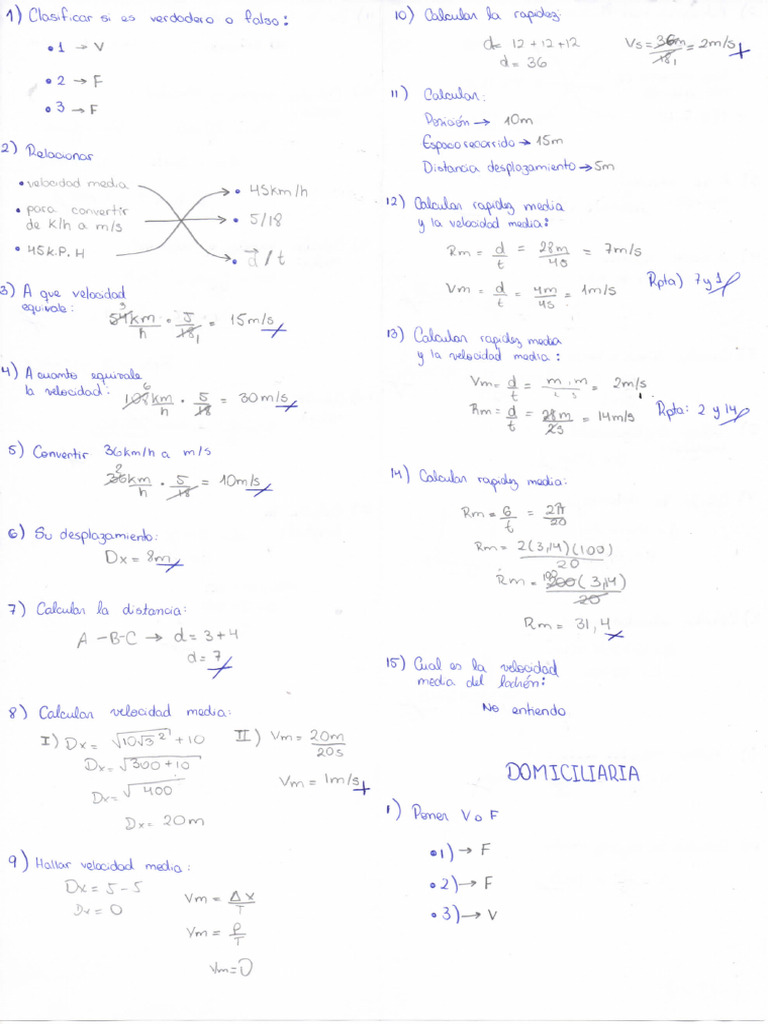 1) Clasificar si es verdadero o falso:
• 1 → V
• 2 → F
• 3 → F
2) Relacionar
• velocidad media
• para convertir
de k/h a m/s
• 45 K.P.H
• 45km/h
• 5/18
• d / t
3) A que velocidad
equivale:
3
54km/h · 5/18 1 = 15m/s
4) A cuanto equivale
la velocidad:
6
108km/h · 5/18 = 30m/s
5) Convertir 36km/h a m/s
2
36km/h · 5/18 = 10m/s
6) Su desplazamiento:
Dx = 8m
7) Calcular la distancia:
A - B - C → d = 3 + 4
d = 7
8) Calcular velocidad media:
I) Dx = √10√3² + 10
Dx = √300 + 10
Dx = √400
Dx = 20m
II) Vm = 20m/20s
Vm = 1m/s
9) Hallar velocidad media:
Dx = 5 - 5
Dx = 0
Vm = Δx/T
Vm = 0/T
Vm = 0
10) Calcular la rapidez:
d = 12 + 12 + 12
d = 36
Vs = 36m/18 1 = 2m/s
11) Calcular:
Posición → 10m
Espacio recorrido → 15m
Distancia desplazamiento → 5m
12) Calcular rapidez media
y la velocidad media:
Rm = d/t = 28m/4s = 7m/s
Vm = d/t = 4m/4s = 1m/s
Rpta) 7 y 1
13) Calcular rapidez media
y la velocidad media:
Vm = d/t = m · m/2 s = 2m/s
Rm = d/t = 28m/2s = 14m/s
Rpta: 2 y 14
14) Calcular rapidez media:
Rm = 6/t = 2π/20
Rm = 2(3,14)(100)/20
Rm = 200(3,14)/20
Rm = 31,4
15) Cual es la velocidad
media del ladrón:
No entiendo
DOMICILIARIA
1) Poner V o F
• 1) → F
• 2) → F
• 3) → V